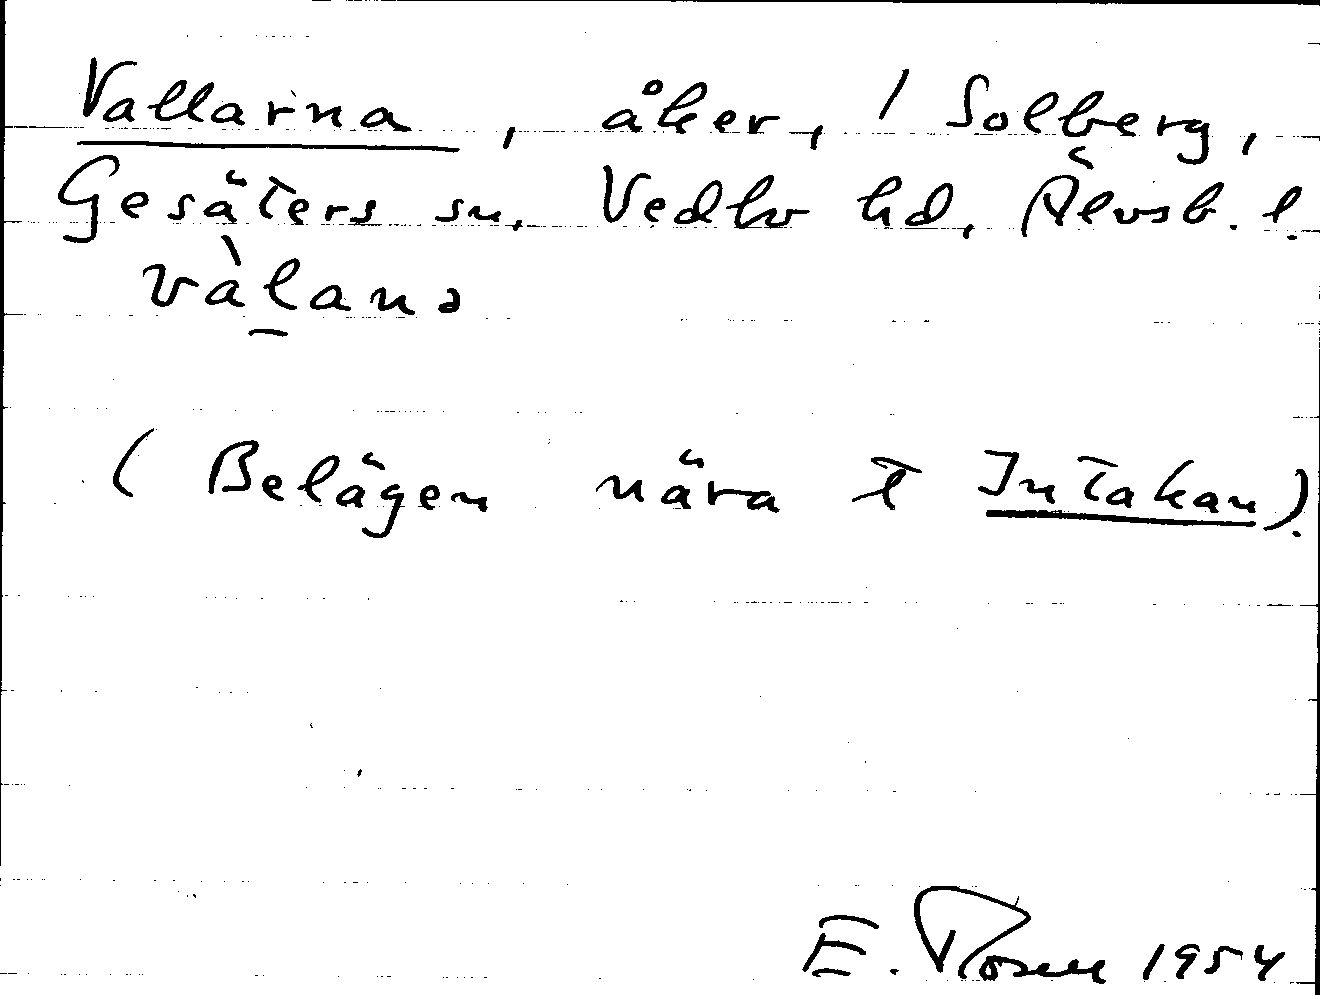 Vallarna, åker, / Solberg,
Gesäters sn. Vedbo hd, Älvsb. l.
vàl̠anə
(Belägen nära t Intakan).
E. Rosell 1954